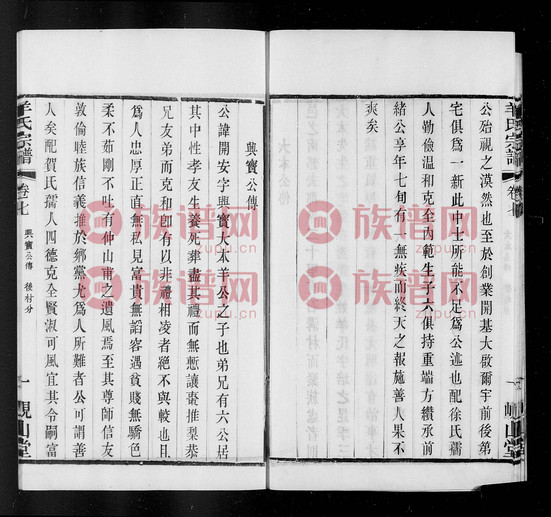 公始視之漠然也至於創業開基大啟爾宇前後第
宅俱為一新此中士所能不足為公述也配徐氏孺
人勤儉温和克全內範生子六俱持重端方纘承前
緒公享年七旬有一無疾而終天之報施善人果不
爽矣
羊氏宗譜
卷七
峴山堂
興寶公傳
公諱開安字興寶大木羊公之子也弟兄有六公居
其中性孝友生養死葬盡其禮而無慙讓棗推梨恭
兄友弟而克和卽有以非禮相凌者絕不與較也且
為人忠厚正直無私見富貴無諂容遇貧賤無驕色
柔不茹剛不吐有仲山甫之遺風焉至其尊師信友
敦倫睦族信義推於鄉黨尤為人所難者公可謂善
人矣配賀氏孺人四德克全賢淑可風宜其令嗣富
羊氏宗譜
卷七
興寶公傳
後村分
一
峴山堂
族谱网
zupu.cn
族谱网
zupu.cn
族谱网
zupu.cn
族谱网
zupu.cn